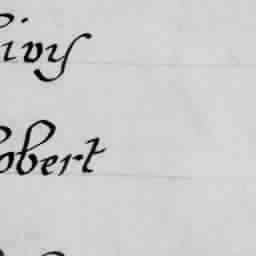 ivy
obert